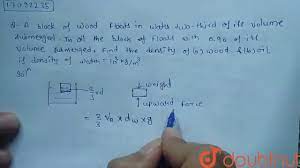 17092235
Q- A block of wood floats in water two-third of its volume
submerged. In oil the block of floats with 0.90 of its
volume submerged. Find the density of (a) wood & (b) oil,
if density of water = 10³ kg/m³
Solⁿ
2/3 rd
weight
upward force
= 2/3 V₀ × dw × g
doubtnut